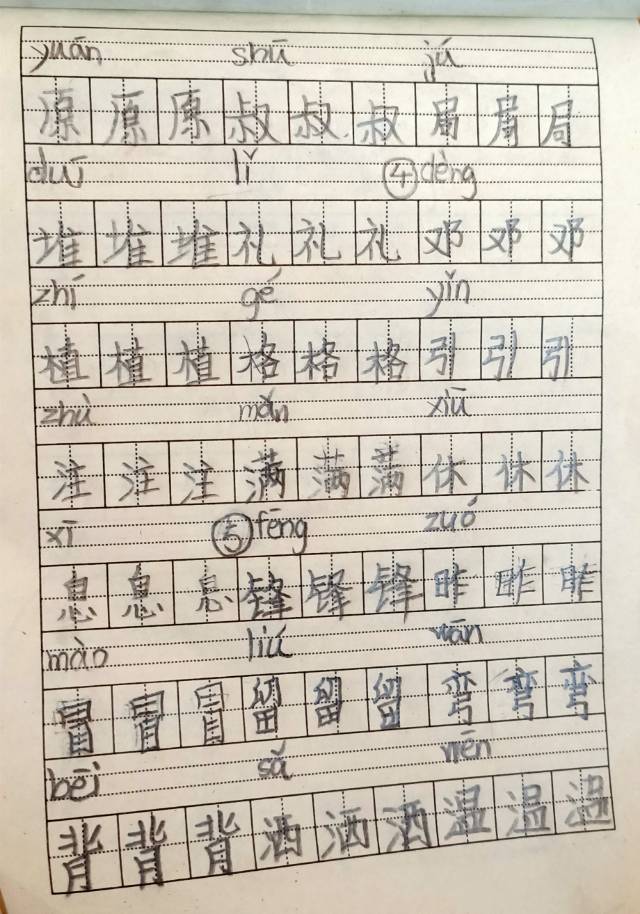 yuán shū jú
原 原 原 叔 叔 叔 局 局 局
duī lǐ ④dèng
堆 堆 堆 礼 礼 礼 邓 邓 邓
zhí gé yǐn
植 植 植 格 格 格 引 引 引
zhù mǎn xiū
注 注 注 满 满 满 休 休 休
xī ⑤fēng zuó
息 息 息 锋 锋 锋 昨 昨 昨
mào liú wān
冒 冒 冒 留 留 留 弯 弯 弯
bēi sǎ wēn
背 背 背 洒 洒 洒 温 温 温